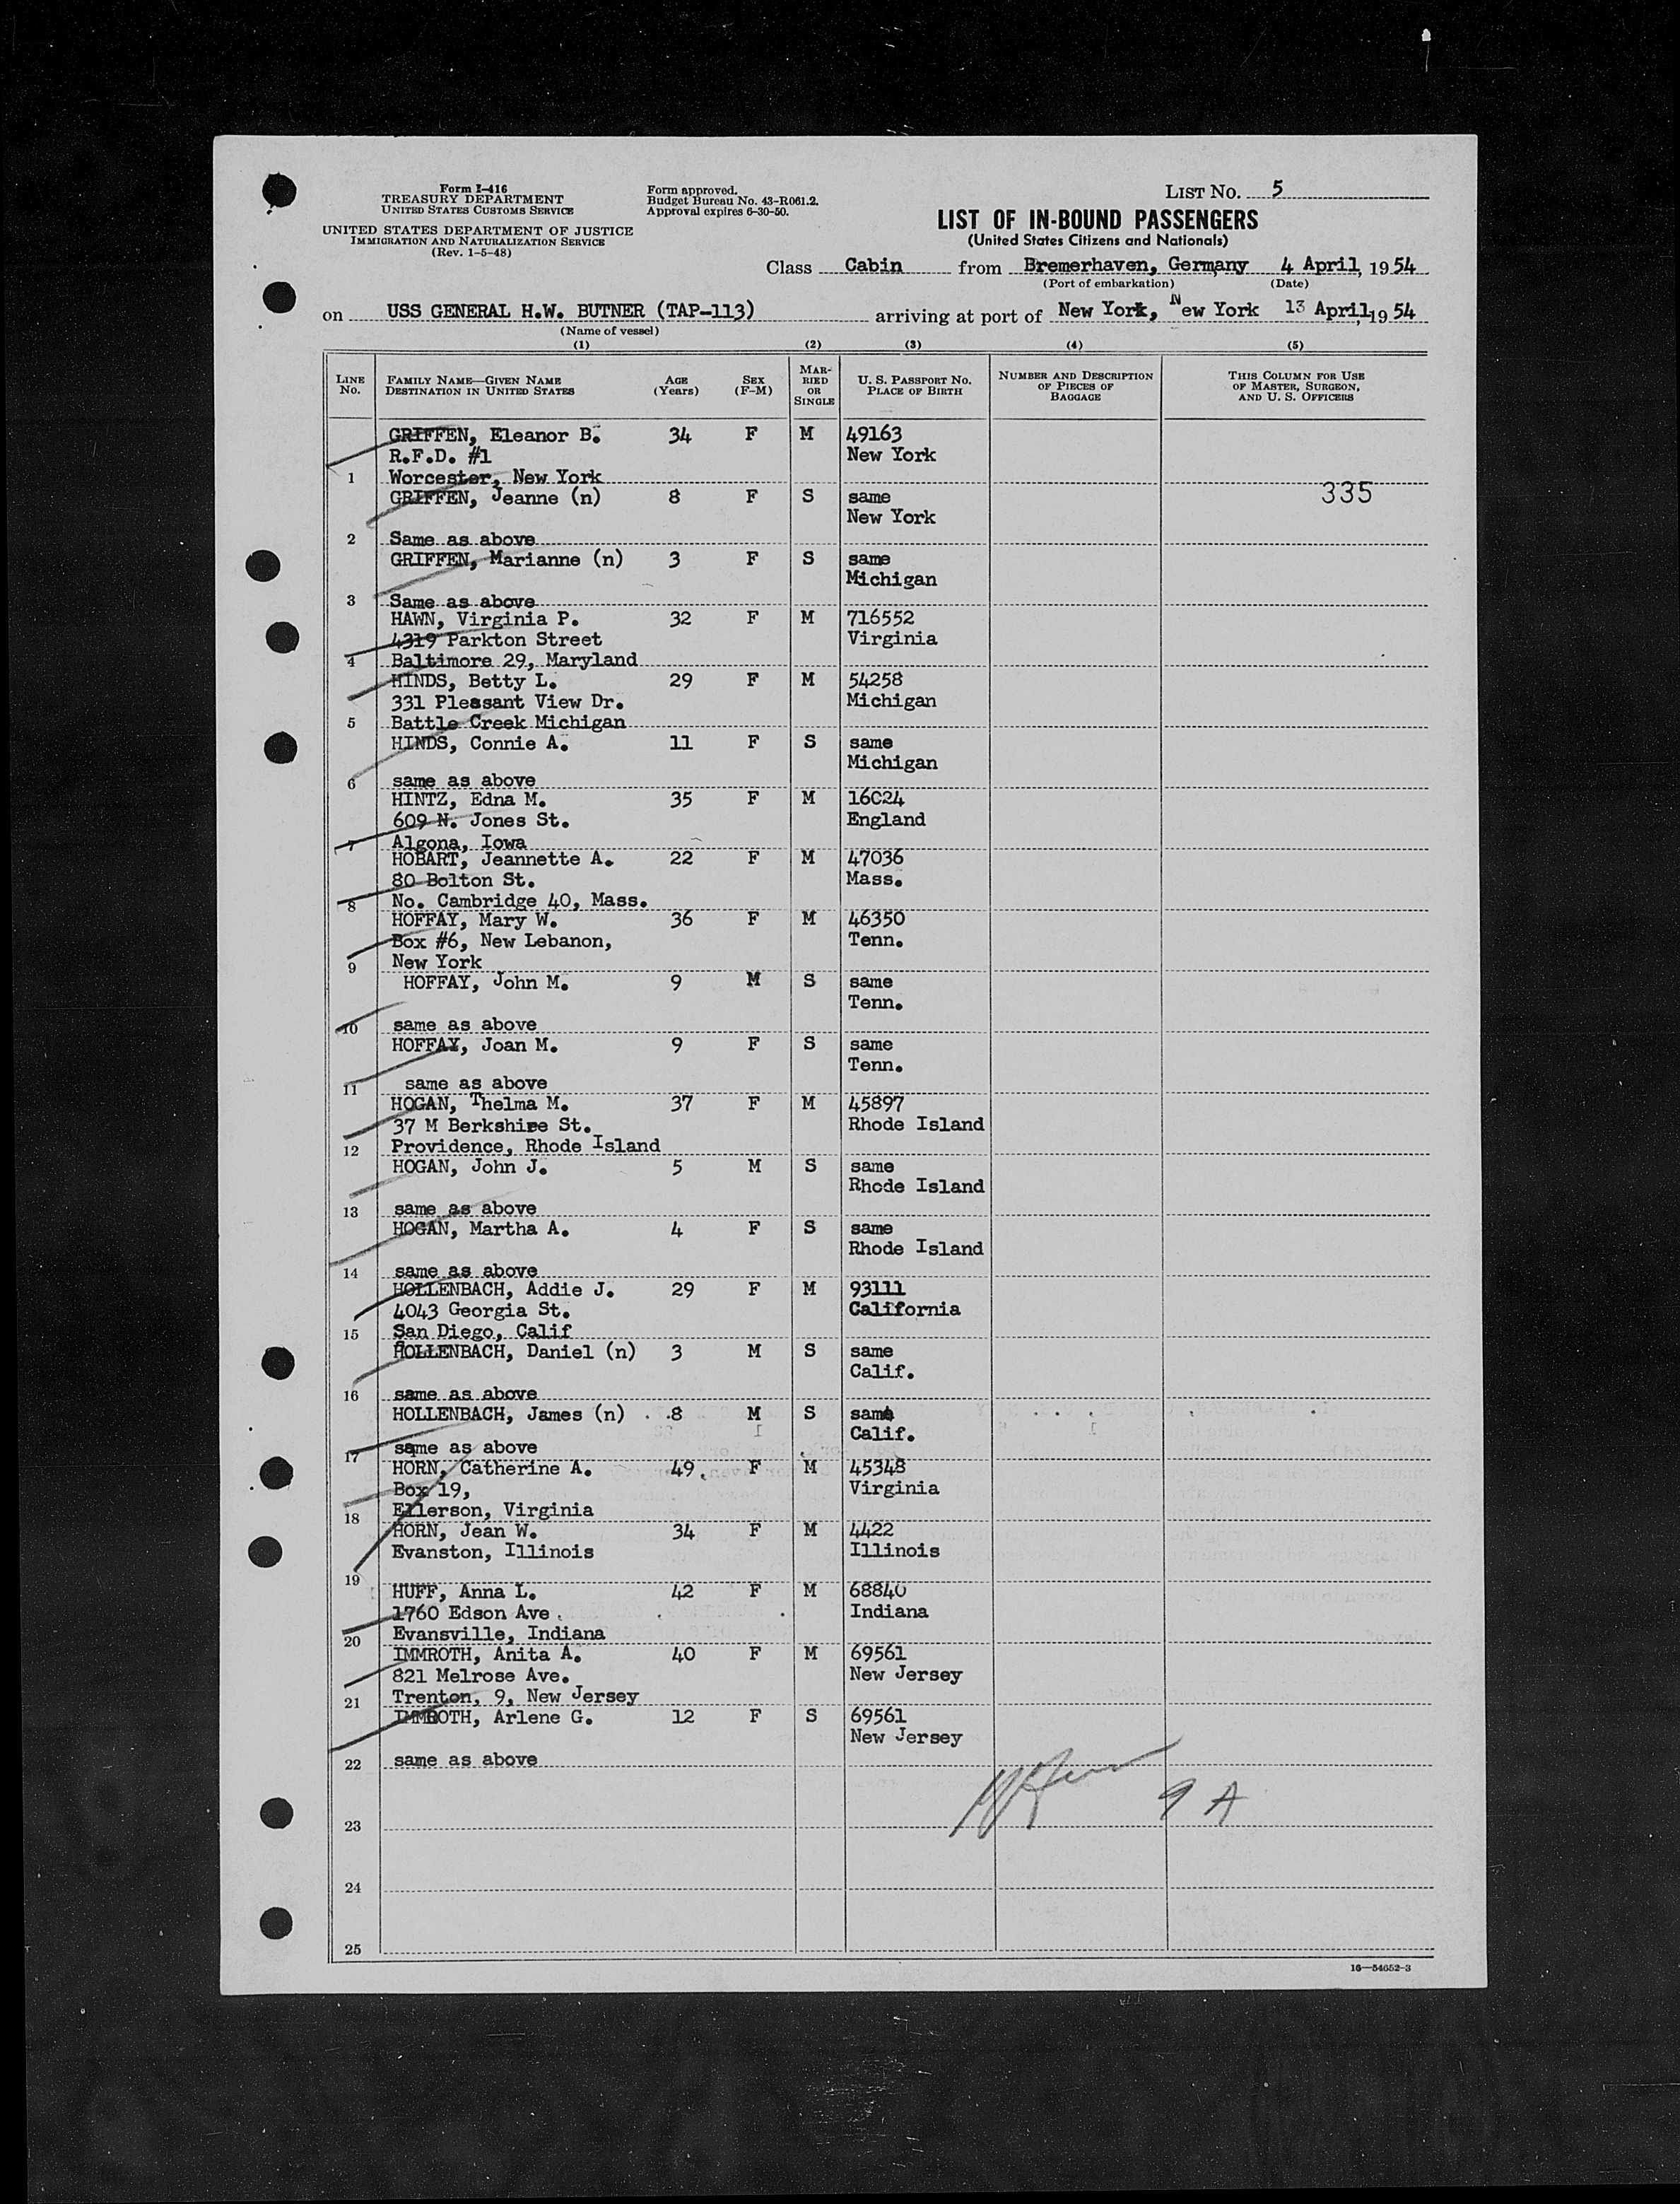 Form I-416
TREASURY DEPARTMENT
UNITED STATES CUSTOMS SERVICE
UNITED STATES DEPARTMENT OF JUSTICE
IMMIGRATION AND NATURALIZATION SERVICE
(Rev. 1-5-48)
Form approved.
Budget Bureau No. 43-R061.2.
Approval expires 6-30-50.
LIST NO. 5
LIST OF IN-BOUND PASSENGERS
(United States Citizens and Nationals)
Class Cabin from Bremerhaven, Germany 4 April, 1954
(Port of embarkation) (Date)
on USS GENERAL H.W. BUTNER (TAP-113) arriving at port of New York, New York 13 April, 1954
(Name of vessel)
(1) (2) (3) (4) (5)
LINE NO. FAMILY NAME—GIVEN NAME DESTINATION IN UNITED STATES AGE (Years) SEX (F-M) MARRIED OR SINGLE U. S. PASSPORT NO. PLACE OF BIRTH NUMBER AND DESCRIPTION OF PIECES OF BAGGAGE THIS COLUMN FOR USE OF MASTER, SURGEON, AND U. S. OFFICERS
GRIFFEN, Eleanor B. 34 F M 49163
R.F.D. #1 New York
1 Worcester, New York
GRIFFEN, Jeanne (n) 8 F S same 335
New York
2 Same as above
GRIFFEN, Marianne (n) 3 F S same
Michigan
3 Same as above
HAWN, Virginia P. 32 F M 716552
4319 Parkton Street Virginia
4 Baltimore 29, Maryland
HINDS, Betty L. 29 F M 54258
331 Pleasant View Dr. Michigan
5 Battle Creek Michigan
HINDS, Connie A. 11 F S same
Michigan
6 same as above
HINTZ, Edna M. 35 F M 16024
609 N. Jones St. England
7 Algona, Iowa
HOBART, Jeannette A. 22 F M 47036
80 Bolton St. Mass.
8 No. Cambridge 40, Mass.
HOFFAY, Mary W. 36 F M 46350
Box #6, New Lebanon, Tenn.
9 New York
HOFFAY, John M. 9 M S same
Tenn.
10 same as above
HOFFAY, Joan M. 9 F S same
Tenn.
11 same as above
HOGAN, Thelma M. 37 F M 45897
37 M Berkshire St. Rhode Island
12 Providence, Rhode Island
HOGAN, John J. 5 M S same
Rhode Island
13 same as above
HOGAN, Martha A. 4 F S same
Rhode Island
14 same as above
HOLLENBACH, Addie J. 29 F M 93111
4043 Georgia St. California
15 San Diego, Calif
HOLLENBACH, Daniel (n) 3 M S same
Calif.
16 same as above
HOLLENBACH, James (n) 8 M S same
Calif.
17 same as above
HORN, Catherine A. 49 F M 45348
Box 19, Virginia
18 Ellerson, Virginia
HORN, Jean W. 34 F M 4422
Evanston, Illinois Illinois
19
HUFF, Anna L. 42 F M 68840
1760 Edson Ave. Indiana
20 Evansville, Indiana
IMMROTH, Anita A. 40 F M 69561
821 Melrose Ave. New Jersey
21 Trenton, 9, New Jersey
IMMROTH, Arlene G. 12 F S 69561
New Jersey
22 same as above
9 A
23
24
25
16—54652-3